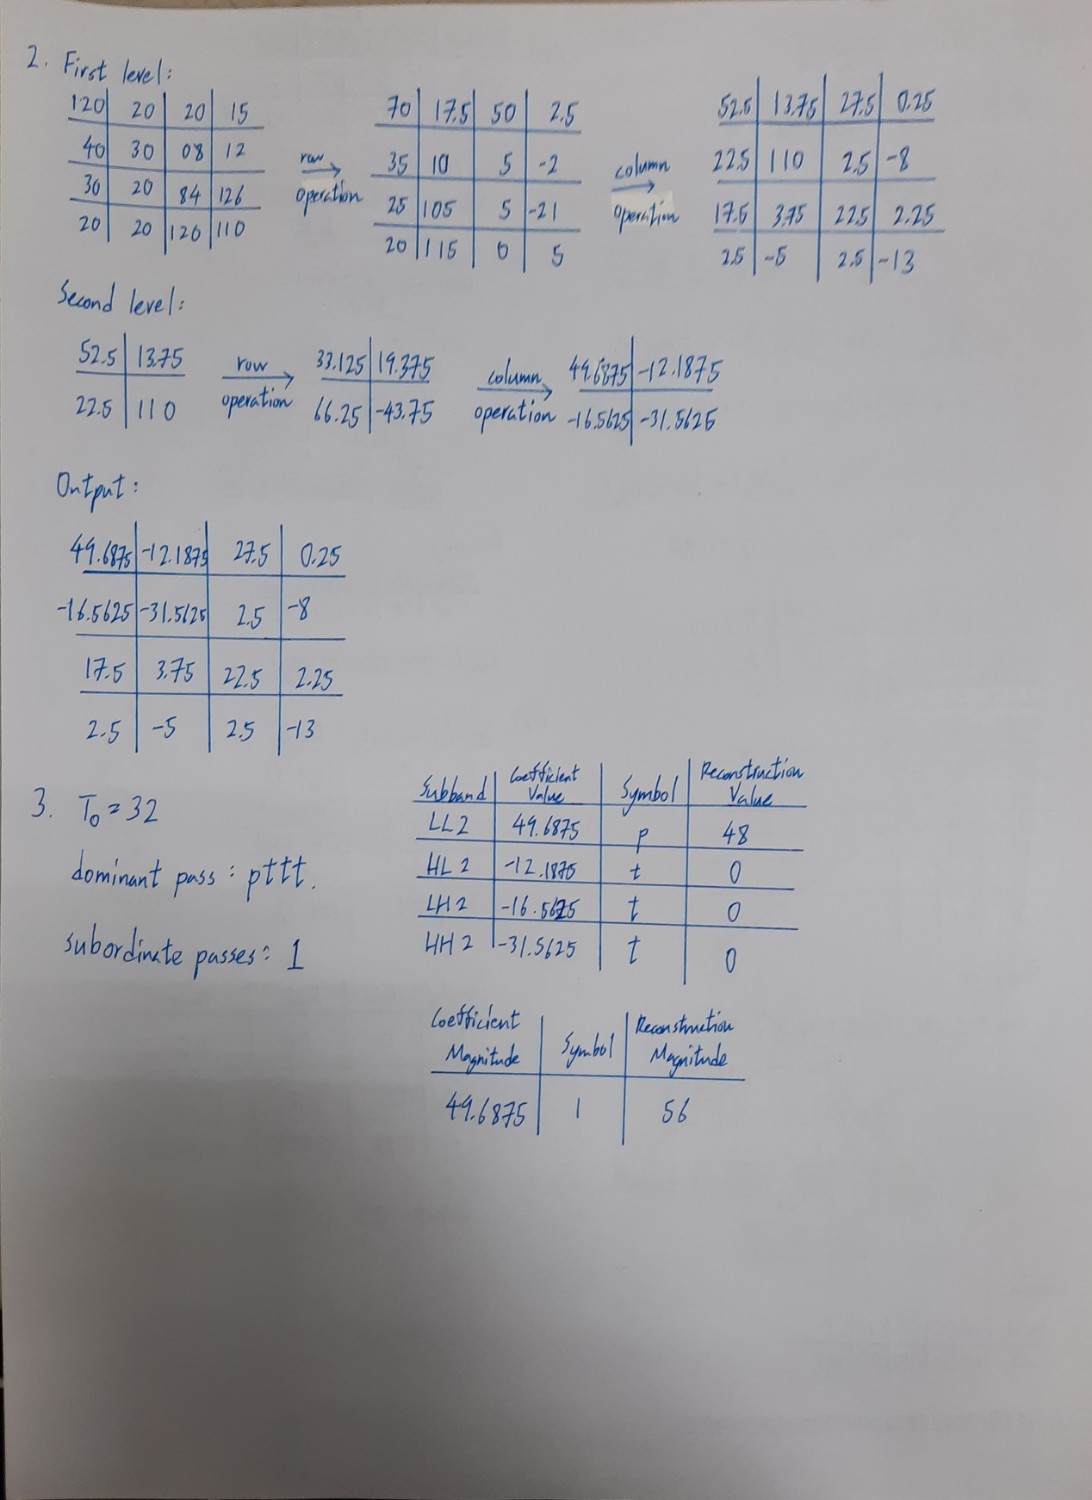 2. First level:
120 20 20 15
40 30 08 12
30 20 84 126
20 20 120 110
row operation
70 17.5 50 2.5
35 10 5 -2
25 105 5 -21
20 115 0 5
column operation
52.5 13.75 27.5 0.25
22.5 110 2.5 -8
17.5 3.75 22.5 2.25
2.5 -5 2.5 -13
Second level:
52.5 13.75
22.5 110
row operation
33.125 19.375
66.25 -43.75
column operation
49.6875 -12.1875
-16.5625 -31.5625
Output:
49.6875 -12.1875 27.5 0.25
-16.5625 -31.5625 2.5 -8
17.5 3.75 22.5 2.25
2.5 -5 2.5 -13
3. T₀ = 32
dominant pass: pttt.
subordinate passes: 1
Subband Coefficient Value Symbol Reconstruction Value
LL2 49.6875 p 48
HL2 -12.1875 t 0
LH2 -16.5625 t 0
HH2 -31.5625 t 0
Coefficient Magnitude Symbol Reconstruction Magnitude
49.6875 1 56